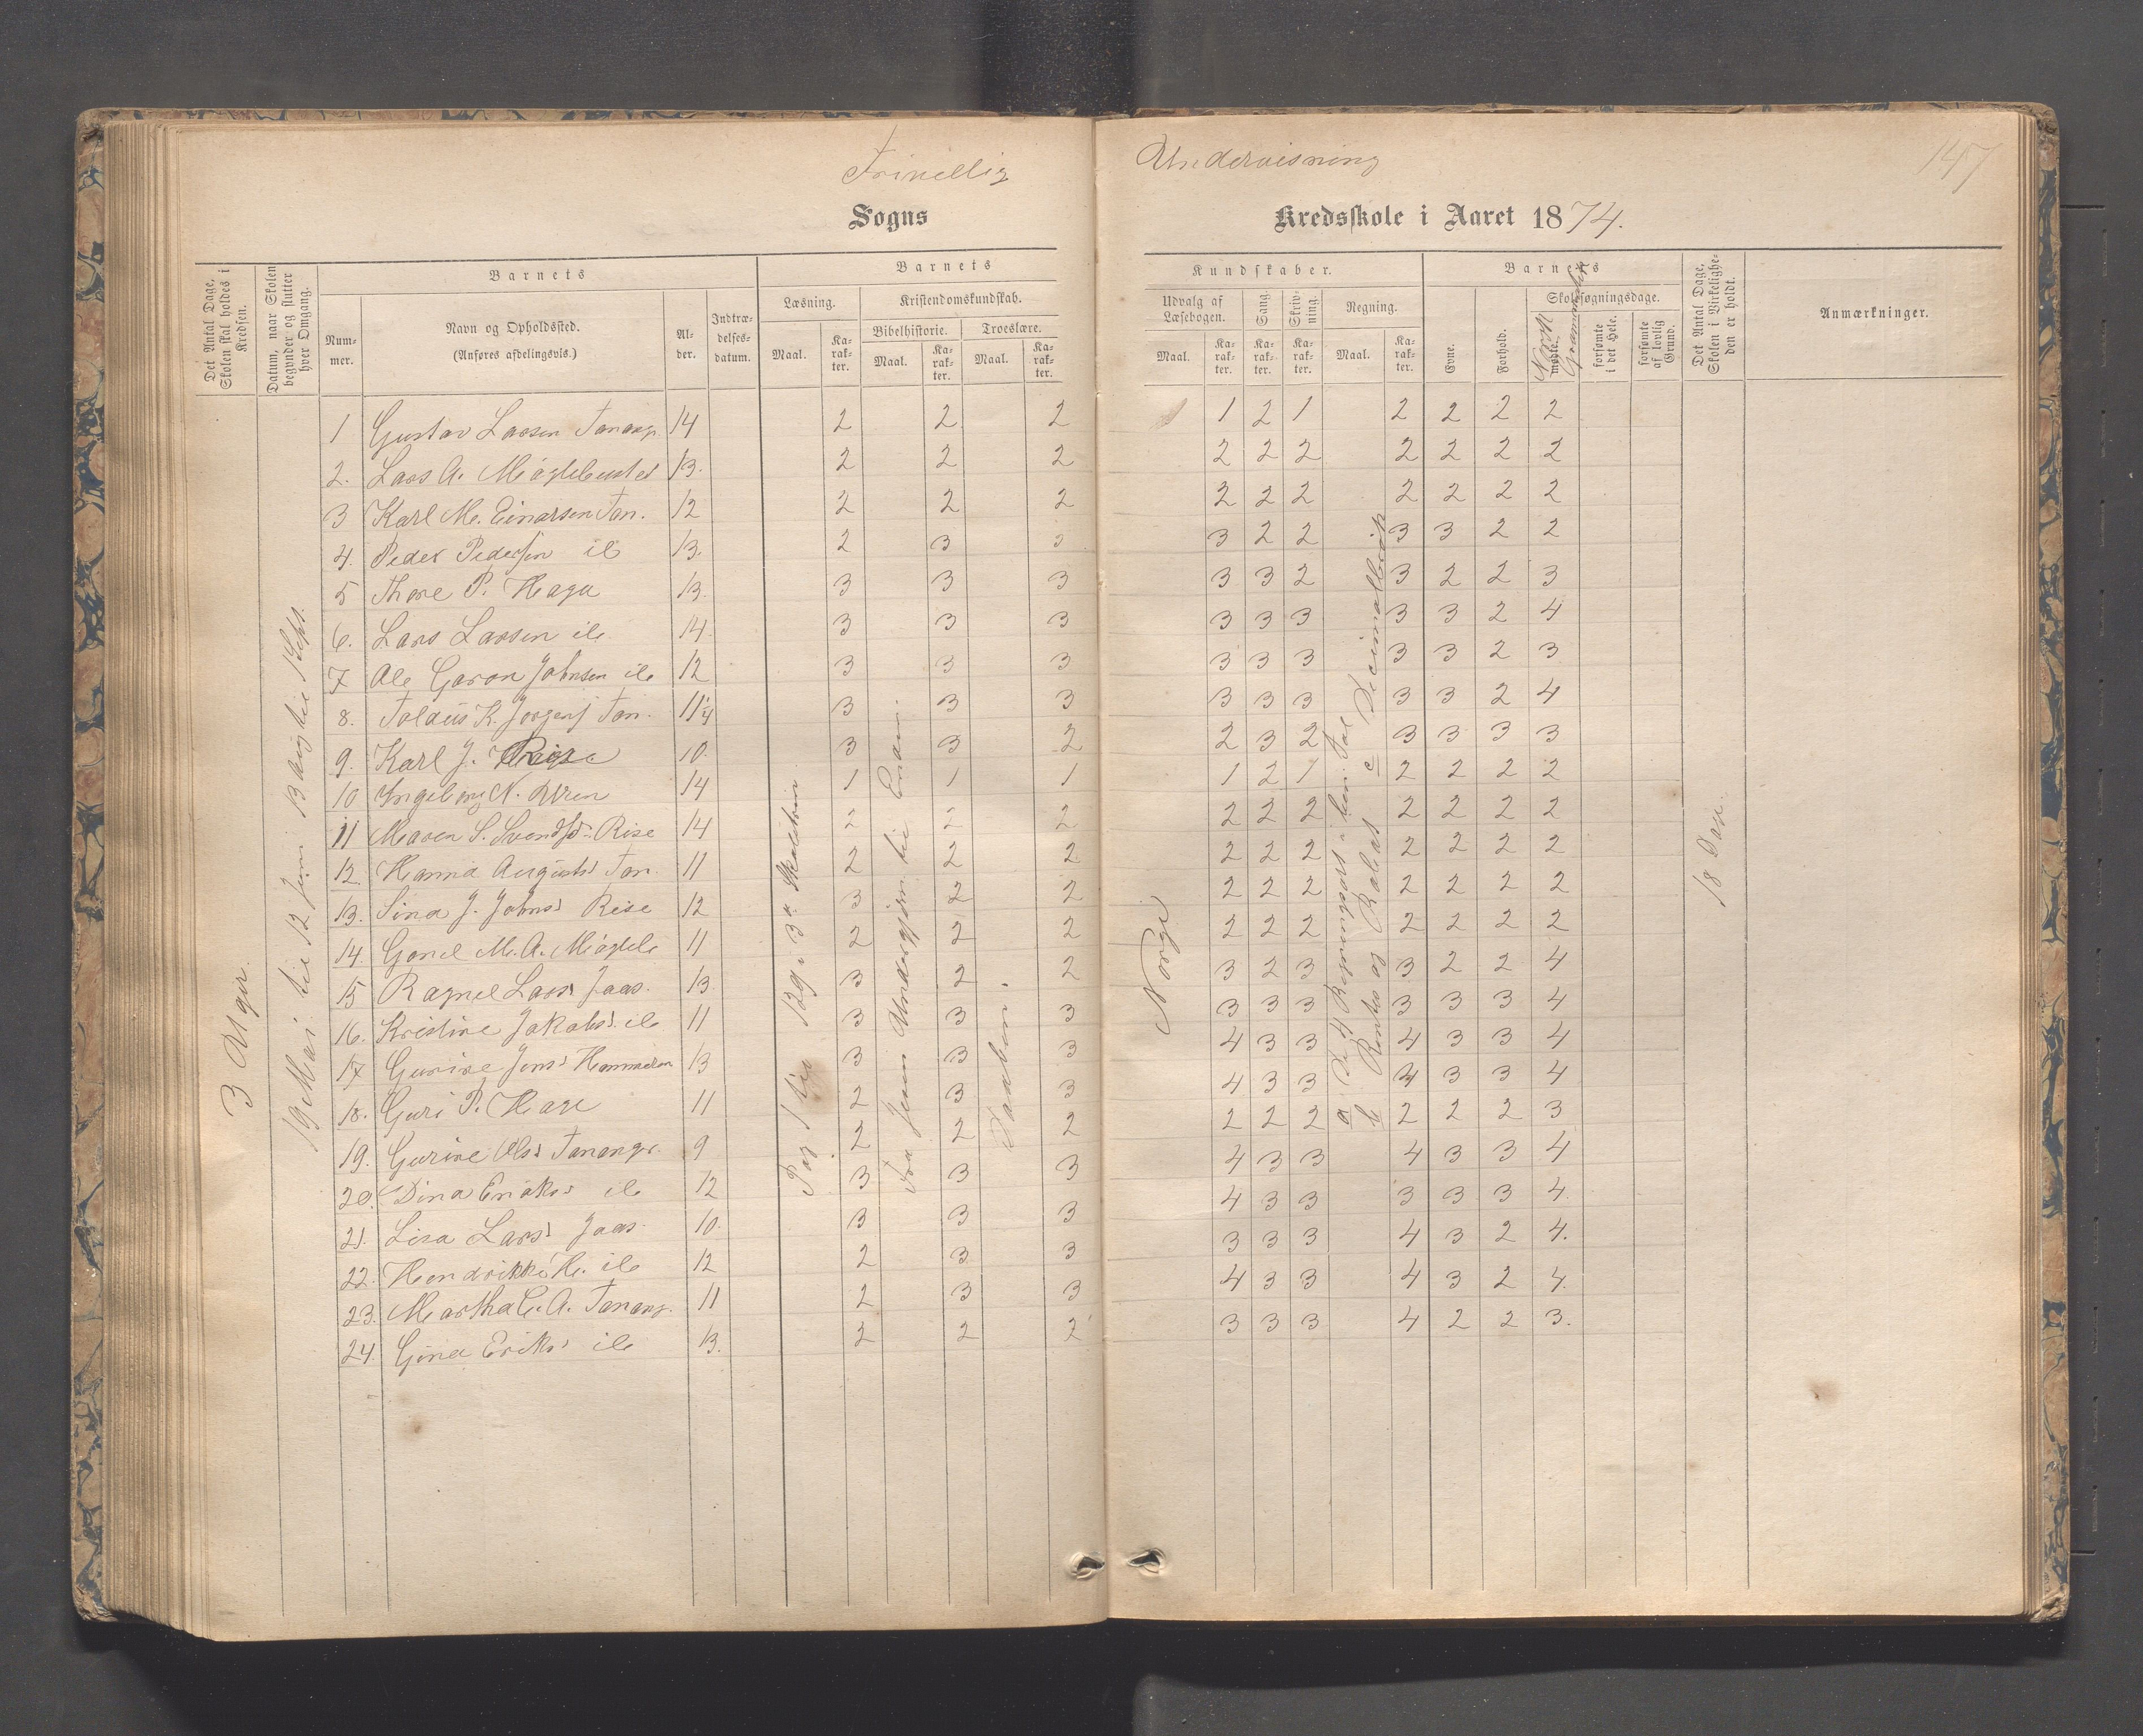 Frivillig Undervisning
147
Sogns Kredsskole i Aaret 1874.
Det Antal Dage, Skolen skal holdes i Kredsen.
Datum, naar Skolen begynder og slutter hver Omgang.
Barnets
Nummer.
Navn og Opholdssted.
(Anføres afdelingsvis.)
Alder.
Indtrædelsesdatum.
Barnets
Læsning.
Maal.
Karakter.
Kristendomskundskab.
Bibelhistorie.
Maal.
Karakter.
Troeslære.
Maal.
Karakter.
Kundskaber.
Udvalg af Læsebogen.
Maal.
Karakter.
Sang.
Karakter.
Skrivning.
Karakter.
Regning.
Maal.
Karakter.
Barnets
Evne.
Forhold.
Skolesøgningsdage.
mødte.
Norsk Grammatik
forsømte i det Hele.
forsømte af lovlig Grund.
Det Antal Dage, Skolen i Virkeligheden er holdt.
Anmærkninger.
3 Uger.
19 Mai til 12 Juni 13 Aug til 1 Sept.
1 Gustav Larsen Tanang. 14 2 2 2 1 2 1 2 2 2 2
2. Lars A. Mågleb 13. 2 2 2 2 2 2 2 2 2 2
3 Karl M. Einarsen Tan. 12 2 2 2 2 2 2 2 2 2 2
4. Peder Pedersen ib 13. 2 3 3 3 2 2 3 3 2 2
5 Thore P. Haga 13. 3 3 3 3 3 2 3 2 2 3
6. Lars Larsen ib 14. 3 3 3 3 3 3 3 3 2 4
7 Ole Goron Johnsen ib 12 3 3 3 3 3 3 3 3 2 3
8. Tolaus K. Jorgens Tan. 11 1/4 3 3 3 3 3 3 3 3 2 4
9. Karl J. Risa 10. 3 3 2 2 3 2 3 3 3 3
10 Ingeborg N. 14 1 1 1 1 2 1 2 2 2 2
11 Maren S. Svendsd. Rise 14 2 2 2 2 2 2 2 2 2 2
12. Hanna Augusts Tan. 11 2 2 2 2 2 2 2 2 2 2
13. Sina J. Johns Rise 12 3 2 2 2 2 2 2 2 2 2
14. Gonil M. A. Mågleb 11 2 2 2 2 2 2 2 2 2 2
15 Ragnil Lars Jaas. 13. 3 2 2 3 2 3 3 2 2 4
16. Kristine Jakobs ib 11 3 3 3 3 3 3 3 3 3 4
17 Gurine Jens Hammeren 13 3 3 3 4 3 3 4 3 3 4
18. Guri P. Hage 11 2 3 3 4 3 3 4 3 3 4
19. Gurine Ols Tanangr. 9 2 2 2 2 2 2 2 2 2 3
20. Dina Eriks ib 12 3 3 3 4 3 3 4 3 3 4
21. Lisa Lars Jaas 10. 3 3 3 4 3 3 3 3 3 4
22. Hendrikke H. ib 12 2 3 3 3 3 3 4 3 2 4.
23. Martha C. A. Tanang. 11 2 3 3 4 3 3 4 3 2 4.
24. Gina Eriks ib 13. 2 2 2 3 3 3 4 2 2 3.
Pag 1 til 129 i 3die Skoletrin
Fra Jesu Undergjern. til Enden.
Daaben.
Norge
a De 4 Regningsart. i hen. Tal
b Rentes og Rabat c Decimalbrøk
18 Dage.